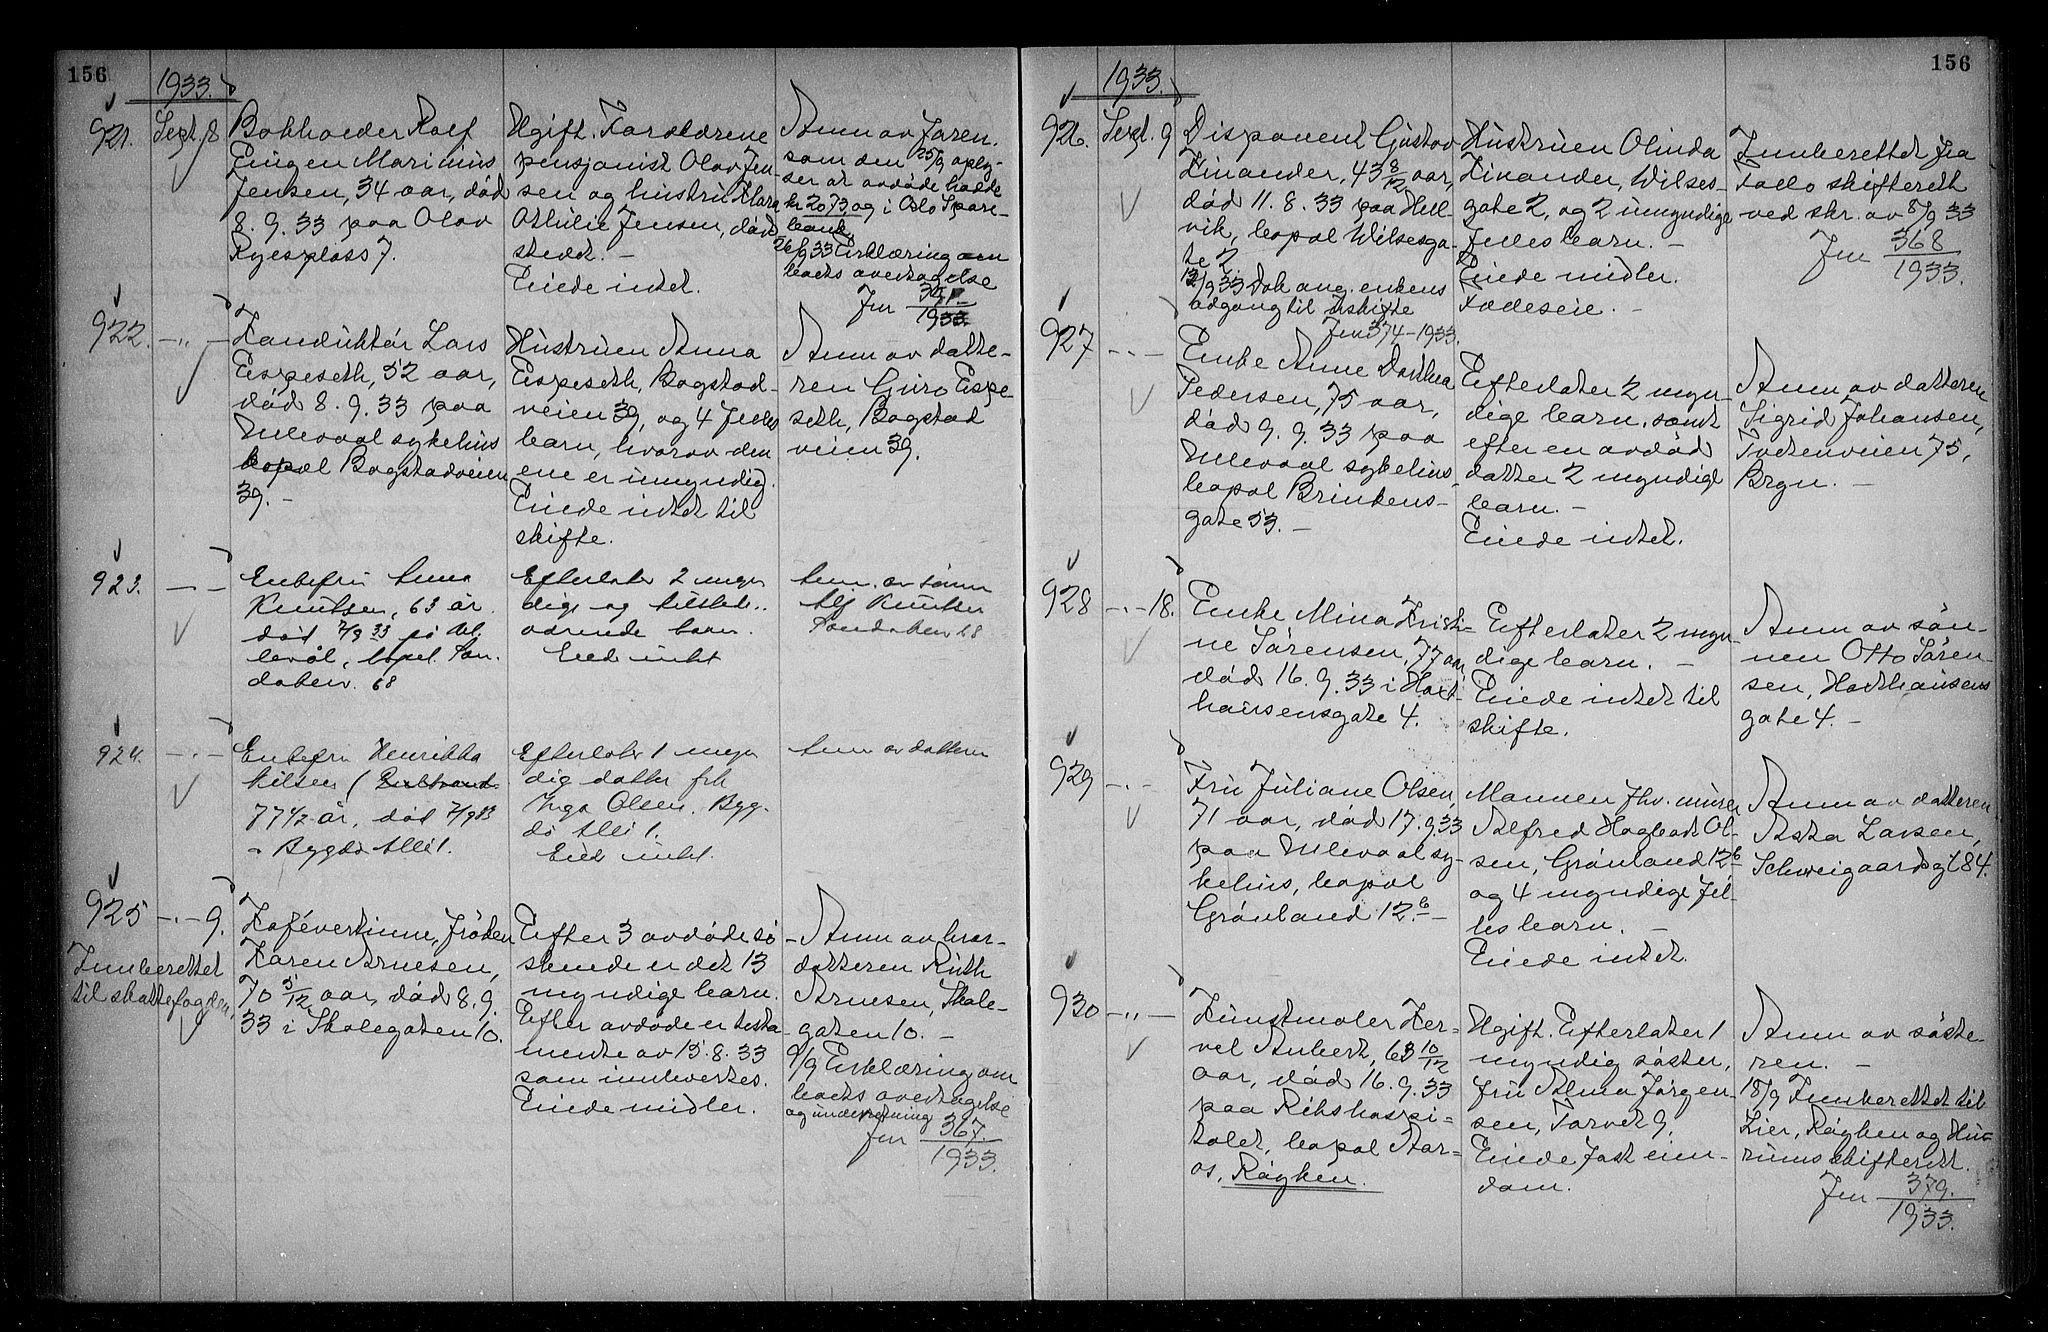 156
1933.
921. Sept. 8
Bokholder Rolf
Eugen Marinius
Jensen, 34 aar, död
8. 9. 33 paa Olav
Ryesplass 7.
Ugift. Forældrene
pensjonist Olav Jen-
sen og hustru Klara
Othilie Jensen, död-
stedet. —
Eiede intet.
Anm av faren.
som den 25/9 oply-
ser at avdöde hadde
kr 2073, og i Oslo Spare-
bank.
26/9 33 Erklæring om
boets overtagelse
Jnr 391
1933.
922. — " —
Konduktör Lars
Espeseth, 52 aar,
död 8. 9. 33 paa
Ullevaal sykehus
bopæl Bogstadveien
39. —
Hustruen Anna
Espeseth, Bogstad-
veien 39, og 4 felles
barn, hvorav den
ene er umyndig.
Eiede intet til
skifte.
Anm av datte-
ren Guro Espe-
seth, Bogstad
veien 39.
923. — " —
Enkefru Anna
Knutsen, 63 år.
död 7/9 33 på Ul-
levål, bopel.
68
Efterlater 2 myn
dige og tilstede-
værende barn.
Eied intet
Anm. av sönn
Alf Knutsen
68
924. — " —
Enkefru Henrikka
Nilsen (
77 1/2 år, död 7/9 33
Bygdö Allé 1.
Efterlater 1 myn
dig datter frk
Inga Olsen. Byg-
dö Allé 1.
Eied intet.
Anm av datteren
925 — " — 9.
Innberettet
til skattefogden.
Kafévertinne, fröken
Karen Arnesen,
70 5/12 aar, död 8. 9.
33 i Skolegaten 10.
Efter 3 avdöde sö-
skende er det 13
myndige barn.
Efter avdöde er testa-
mente av 15. 8. 33
som innleveres.
Eiede midler.
Anm av bror-
datteren Ruth
Arnesen, Skole-
gaten 10. —
9/9 Erklæring om
boets overtagelse
og underretning
Jnr 367.
1933.
156
1933.
926. Sept. 9
Disponent Gustav
Kinander, 43 8/12 aar,
död 11. 8. 33 paa Hel-
vik, bopæl Wilsesga-
te 2
12/9 33 Dok ang. enkens
adgang til uskifte
Jnr 374 - 1933.
Hustruen Olinda
Kinander, Wilses-
gate 2, og 2 umyndige
felles barn. —
Eiede midler.
Fælleseie. —
Innberettet fra
Follo skifterett
ved skr. av 8/9 33
Jnr 368
1933.
927 — " —
Enke Anne Dorthea
Pedersen, 75 aar,
död 9. 9. 33 paa
Ullevaal sykehus
bopæl Brinkens-
gate 53. —
Efterlater 2 myn-
dige barn, samt
efter en avdöd
datter 2 myndige
barn. —
Eiede intet.
Anm av datteren
Sigrid Johansen,
Totenveien 75,
Bryn. —
928 — " — 18.
Enke Mina Kristi-
ne Sörensen, 77 aar,
död 16. 9. 33 i Haxt-
hausensgate 4.
Efterlater 2 myn-
dige barn. —
Eiede intet til
skifte.
Anm av sön-
nen Otto Sören-
sen, Haxthausens
gate 4. —
929 — " —
Fru Juliane Olsen,
71 aar, död 17. 9 33
paa Ullevaal sy-
kehus, bopæl
Grönland 12 b —
Mannen fhv. murer
Alfred Hagbart Ol-
sen, Grönland 12 b
og 4 myndige fel-
les barn. —
Eiede intet.
Anm av datteren
Asta Larsen,
Schweigaardsgt 84.
930 — " —
Kunstmaler Her-
vel Aubert, 63 10/12
aar, död 16. 9. 33
paa Rikshospi-
talet, bopæl Aar-
os, Röyken.
Ugift. Efterlater 1
myndig söster,
fru Alma Jörgen-
sen, Torvet 9.
Eiede fast eien-
dom.
Anm av söste-
ren. —
18/9 Innberettet til
Lier, Röyken og Hu-
rums skifterett.
Jnr 379.
1933.